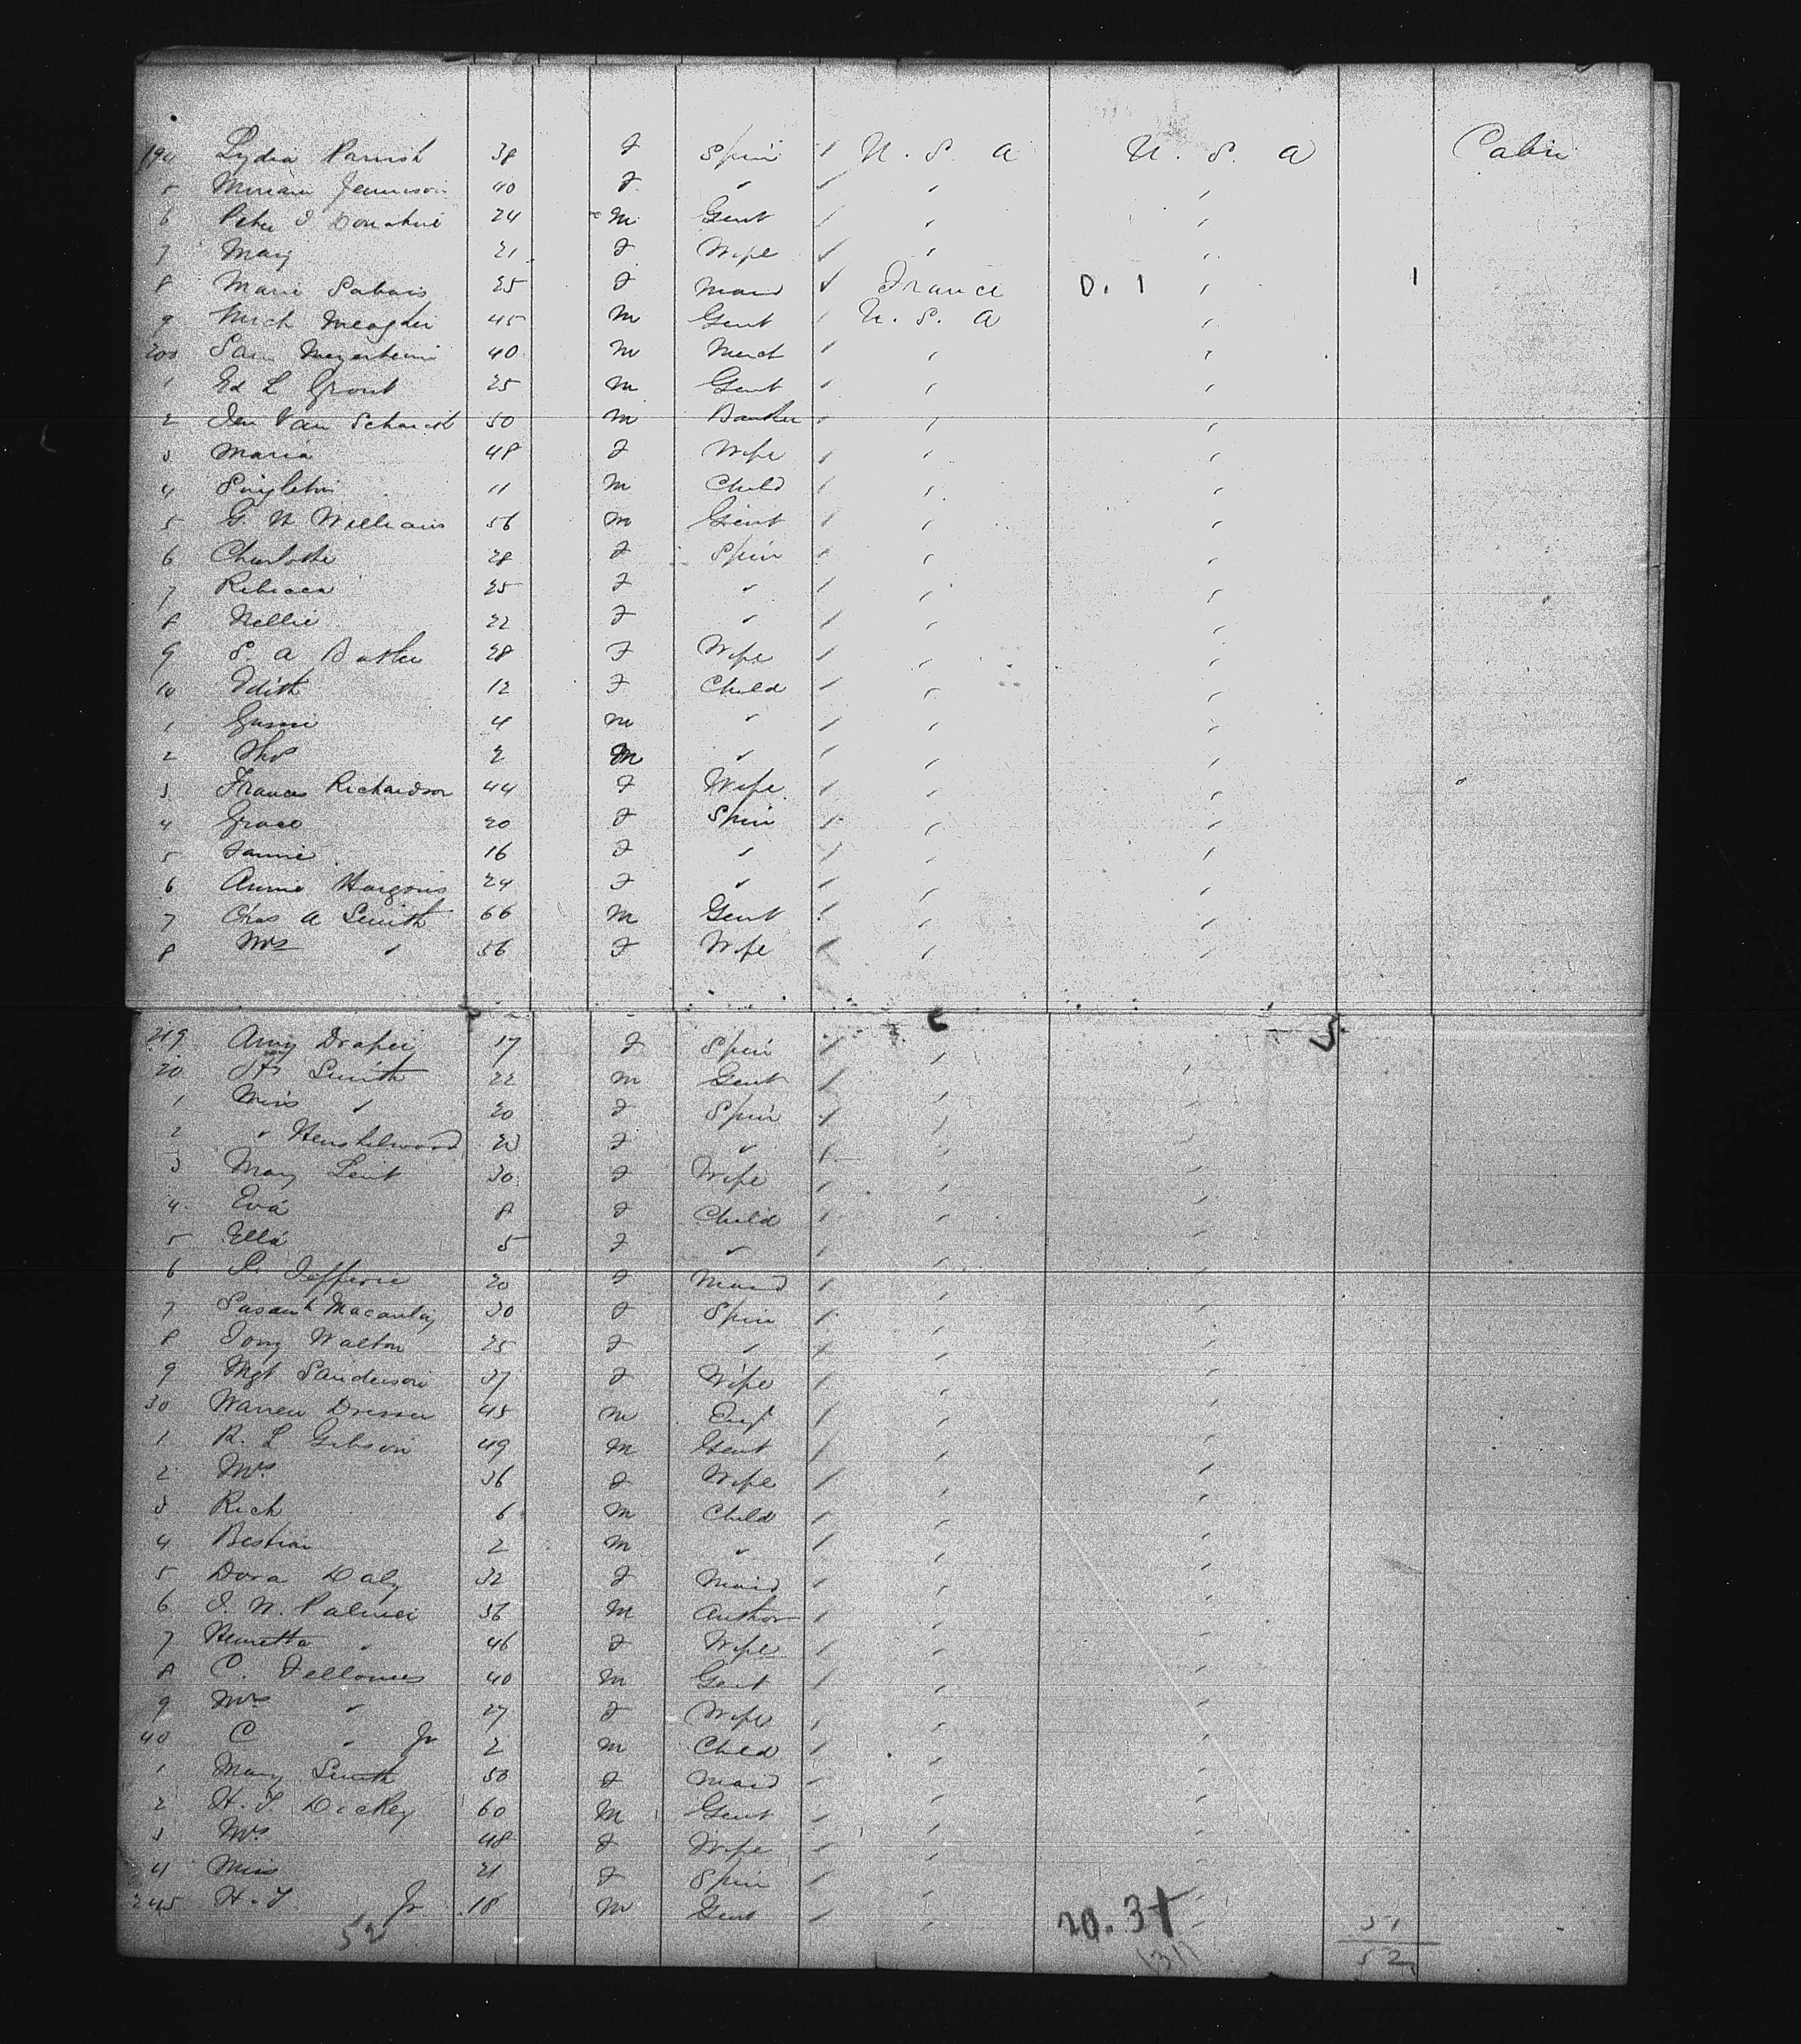 194 Lydia Parrish 38 F Spin / U. S. A U. S. A Cabin
5 Miriam Jennison 40 F " / " "
6 Peter J Donahue 24 M Gent / " "
7 Mary 21 F Wife / " "
8 Marie 25 F Maid / France D. 1 " 1
9 Mich Meagher 45 M Gent / U. S. A "
200 Sam 40 M Merch / " "
1 Ed L Grout 25 M Gent / " "
2 Van Schaick 50 M Banker / " "
3 Maria 48 F Wife / " "
4 Singleton 11 M Child / " "
5 G. N Williams 56 M Gent / " "
6 Charlotte 28 F Spin / " "
7 Rebecca 25 F " / " "
8 Nellie 22 F " / " "
9 S. A 28 F Wife / " "
10 Edith 12 F Child / " "
1 4 M " / " "
2 Tho 2 M " / " "
3 Frances Richardson 44 F Wife / " " "
4 Grace 20 F Spin / " "
5 Fannie 16 F " / " "
6 Annie Hargous 24 F " / " "
7 Chas A Smith 66 M Gent / " "
8 Mrs " 56 F Wife / " "
219 Amy Draper 17 F Spin / " "
20 Smith 22 M Gent / " "
1 Miss " 20 F Spin / " "
2 " Henshelwood 20 F " / " "
3 Mary Lent 30 F Wife / " "
4 Eva 8 F Child / " "
5 Ella 5 F " / " "
6 Jefferie 20 F Maid / " "
7 Susan h Macaulay 30 F Spin / " "
8 Walton 25 F " / " "
9 Mgt Sanderson 37 F Wife / " "
30 Warren Dresser 45 M Eng / " "
1 R. L Gibson 49 M Gent / " "
2 Mrs 36 F Wife / " "
3 Rich 6 M Child / " "
4 2 M " / " "
5 Dora Daly 32 F Maid / " "
6 J. W. Palmer 56 M Author / " "
7 Henretta " 46 F Wife / " "
8 C. Fellowes 40 M Gent / " "
9 Mrs " 27 F Wife / " "
40 C " Jr 2 M Child / " "
1 Mary Smith 50 F Maid / " "
2 H. T Dickey 60 M Gent / " "
3 Mrs 48 F Wife / " "
4 Miss 21 F Spin / " "
245 H. T " Jr 18 M Gent / " "
52 20. 31 51
(31) 52